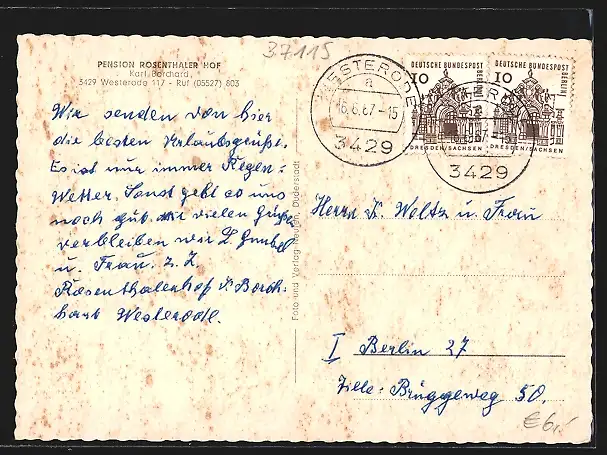 37115
PENSION ROSENTHALER HOF
Karl Borchard
3429 Westerode 117 - Ruf (05527) 803
Wir senden von hier
die besten Urlaubsgrüße.
Es ist nur immer Regen-
Wetter. Sonst geht es uns
noch gut. Mit vielen Grüßen
verbleiben wir
u. Frau. z. Z.
Rosenthalerhof K. Borch-
hart Westerode.
Foto und Verlag Duderstadt
DEUTSCHE BUNDESPOST
BERLIN
10
DRESDEN/SACHSEN
DEUTSCHE BUNDESPOST
BERLIN
10
DRESDEN/SACHSEN
WESTERODE
a
16.6.67-15
3429
3429
Herrn K. Woltz u. Frau
I Berlin 27
Zille: Brüggeweg 50.
€6,-